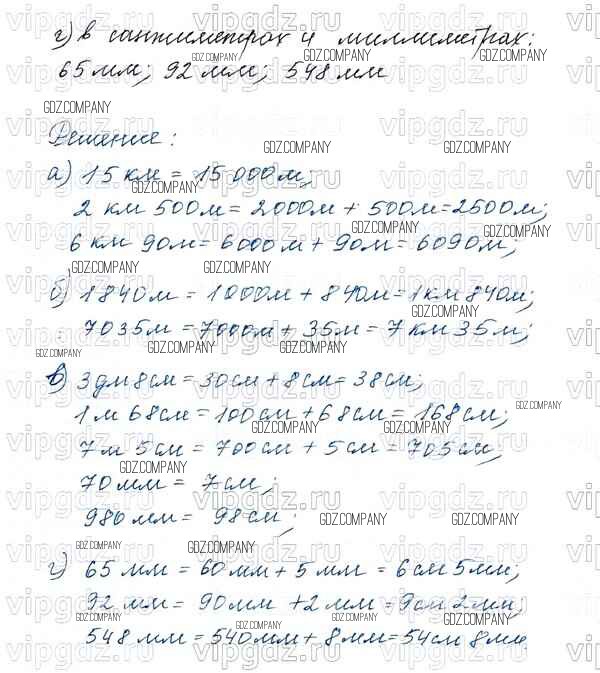 г) в сантиметрах и миллиметрах:
65 мм; 92 мм; 548 мм
Решение:
а) 15 км = 15 000м;
2 км 500м = 2000м + 500м = 2500м;
6 км 90м = 6000м + 90м = 6090м;
б) 1840м = 1000м + 840м = 1 км 840м;
7035м = 7000м + 35м = 7 км 35м;
в) 3 дм 8 см = 30 см + 8 см = 38 см;
1 м 68 см = 100 см + 68 см = 168 см;
7 м 5 см = 700 см + 5 см = 705 см;
70 мм = 7 см;
980 мм = 98 см;
г) 65 мм = 60 мм + 5 мм = 6 см 5 мм;
92 мм = 90 мм + 2 мм = 9 см 2 мм;
548 мм = 540 мм + 8 мм = 54 см 8 мм.
GDZ.COMPANY
vipgdz.ru